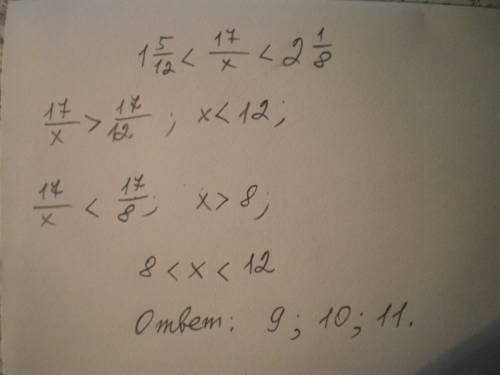 1 5/12 < 17/x < 2 1/8
17/x > 17/12 ; x < 12;
17/x < 17/8; x > 8;
8 < x < 12
Ответ: 9; 10; 11.